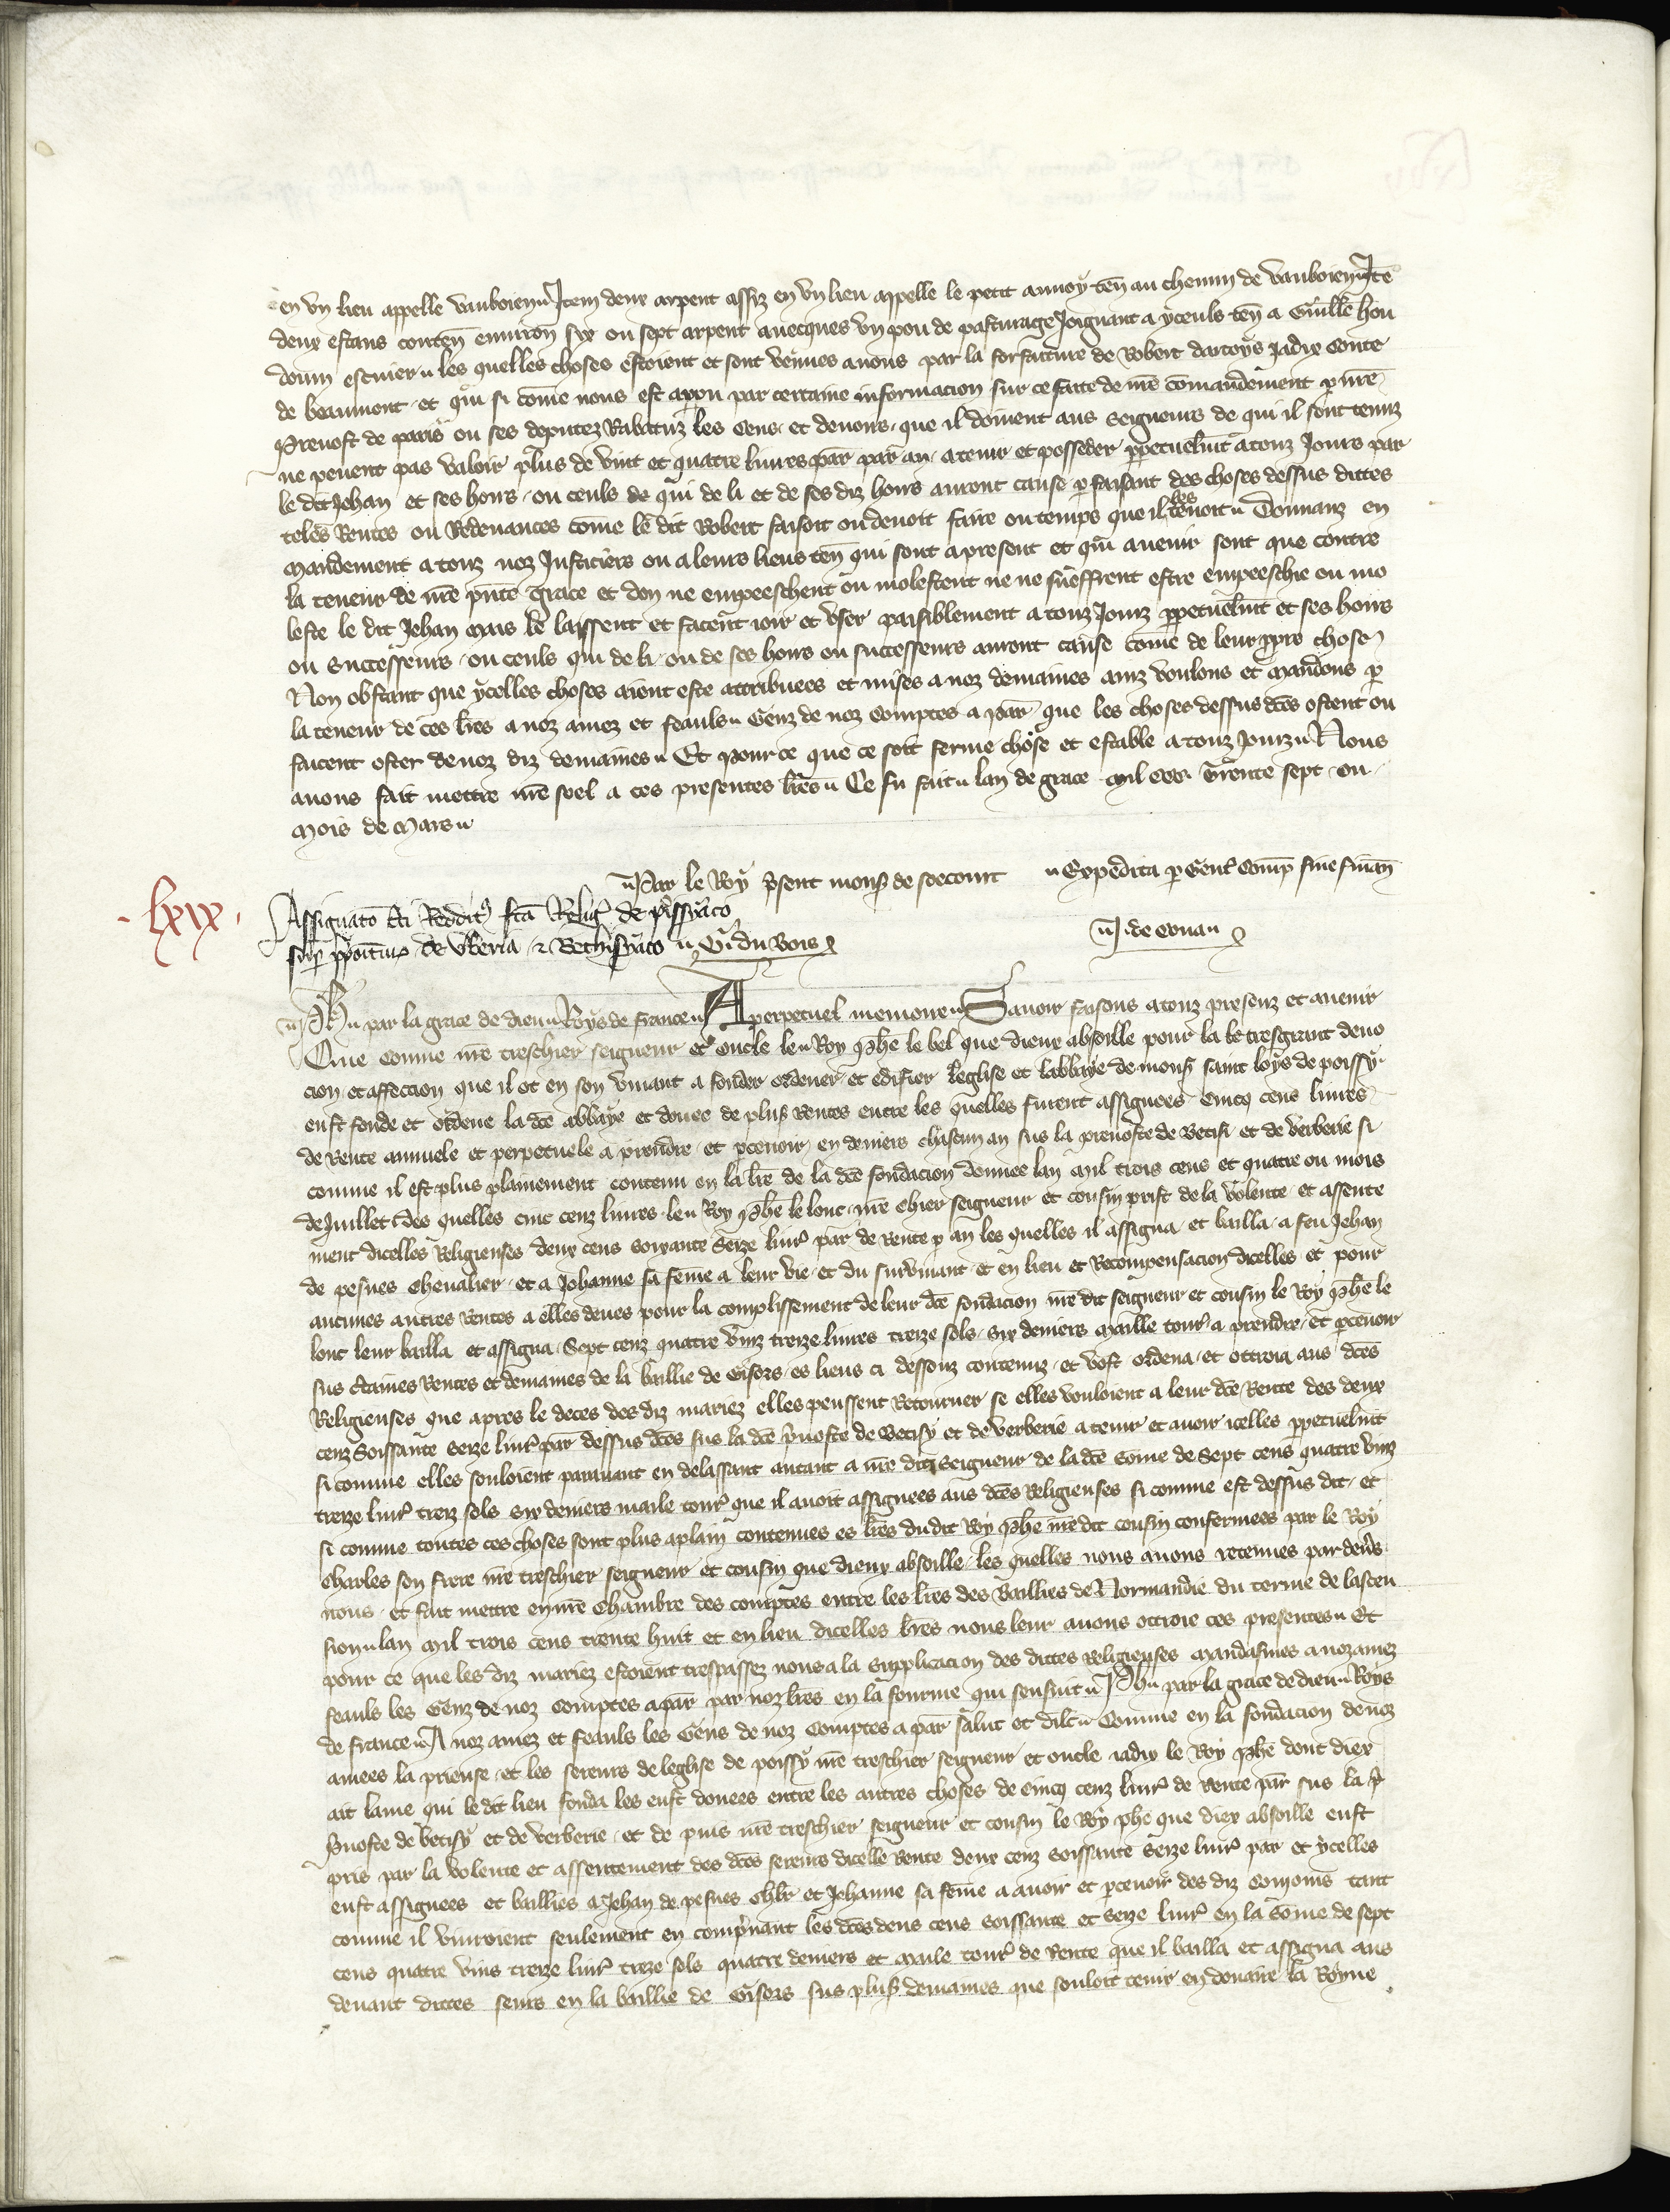 en vn lieu appelle vauboien Item deux arpent assiz en vn lieu appelle le petit aunoy ten au chemin de vauboien Ite
deux estans conten enuiron six ou sept arpent auecques vn pou de pasturage Joignant a yceuls ten a Guille hou
douin escuier les quelles choses estoient et sont venues a nous par la forfaiture de Robert dartoys jadix Conte
de beaumont et qui si come nous est apparu par certaine informacion sur ce faite de nre comandement p nre
Preuost de paris ou ses deputez Rabatuz les Cens et deuoirs que il doiuent aus Seigneurs de qui il sont tenuz
ne peuent pas valoir plus de vint et quatre liures par par an a tenir et posseder ppetuelmt a touz Jours par
le dit Jehan et ses hoirs ou ceuls de qui de li et de ses diz hoirs auront cause p faisant des choses dessus dittes
teles Rentes ou Redeuances come le dit Robert faisoit ou deuoit faire ou temps que il les tenoit Donnanz en
mandement a touz noz Justiciers ou a leurs lieus ten qui sont a present et qui auenir sont que contre
la teneur de nre pnte grace et don ne empeeschent ou molestent ne ne sueffrent estre empeeschie ou mo
leste le dit Jehan mais le laissent et facent ioir et vser paisiblement a touz Jourz ppetuelmt et ses hoirs
ou successeurs ou ceuls qui de li ou de ses hoirs ou successeurs auront cause come de leur ppre chose
Non obstant que ycelles choses aient este attribuees et mises a noz demaines ainz voulons et mandons p
la teneur de ces lres a noz amez et feauls Genz de noz Comptes a par que les choses dessus dces ostent ou
facent oster de noz diz demaines Et pour ce que ce soit ferme chose et estable a touz jourz Nous
auons fait mettre nre seel a ces presentes lres Ce fu fait lan de grace mil ccc trente sept ou
mois de Mars
Par le Roy psent mons de soecourt Expedita p Gent comp sine finan
lxix
Assignato cti Redditus fca Relig de pissyaco
sup ppoituras de vberia et Bethisyaco G du Bois J de cona
Ph par la grace de dieu Roys de France A perpetuel memoire Sauoir faisons a touz presenz et auenir
Que comme nre treschier seigneur et oncle le Roy phe le bel que dieux absoille pour la tresgrant deuo
cion et affeccion que il ot en son viuant a fonder ordener et edifier leglise et labbaye de mons saint loys de poissy
eust fonde et ordene la dce abbaye et douee de plus Rentes entre les quelles furent assignees cinq cens liures
de Rente annuele et perpetuele a prendre et pceuoir en deniers chascun an sus la preuoste de Betisi et de verberie si
comme il est plus plainement contenu en la lre de la dce fondacion donnee lan mil trois cens et quatre ou mois
de Juillet des quelles cinc cenz liures le Roy phe le lonc nre chier seigneur et cousin prist de la volente et assente
ment dicelles Religieuses deux cens soixante seze liur par de rente p an les quelles il assigna et bailla a feu Jehan
de pesues cheualier et a Johanne sa feme a leur vie et du suruiuant et en lieu et Recompensacion dicelles et pour
aucunes autres Rentes a elles deues pour la complissement de leur dce fondacion nre dit seigneur et cousin le Roy phe le
lonc leur bailla et assigna Sept cenz quatre vinz treize liures treize sols six deniers maille tour a prendre et pceuoir
sus ctaines Rentes et demaines de la baillie de Gisors es lieus ci dessouz contenuz et volt ordena et ottroia aus dces
Religieuses que apres le deces des diz mariez elles peussent Retourner se elles vouloient a leur dce Rente des deux
cenz soissante seize liur par dessus dces sus la dce puoste de Betisy et de verberie a tenir et auoir icelles ppetuelmt
si comme elles souloient parauant en delassant autant a nre dit seigneur de la dce some de Sept cens quatre vinz
treize liur treiz sols six deniers maile tour que il auoit assignees aus dces Religieuses si comme est dessus dit et
si comme toutes ces choses sont plus aplain contenues es lres du dit Roy phe nre dit cousin confermees par le Roy
charles son frere nre treschier seigneur et cousin que dieux absoille les quelles nous auons retenues par deuers
nous et fait mettre en nre chambre des comptes entre les lres des Baillies de Normandie du terme de lascen
sion lan mil trois cens trente huit et en lieu dicelles lres nous leur auons ottroie ces presentes Et
pour ce que les diz mariez estoient trespassez nous a la supplicacion des dittes religieuses mandasmes a noz amez
feauls les Genz de noz Comptes a par par noz lres en la fourme qui sensuit Ph par la grace de dieu Roys
de france A noz amez et feauls les Gens de noz Comptes a par salut et dilc Comme en la fondacion de noz
amees la prieuse et les sereurs de leglise de poissy nre treschier seigneur et oncle iadix le Roy phe dont diex
ait lame qui le dit lieu fonda les eust douees entre les autres choses de cinq cenz liur de Rente par sus la p
puoste de betisy et de verberie et de puis nre treschier seigneur et cousin le Roy phe que diex absoille eust
pris par la volente et assentement des dces sereurs dicelle Rente deux cenz soissante seize liur par et ycelles
eust assignees et baillies a Jehan de pesues chlr et Johanne sa feme a auoir et pceuoir des diz comoins tant
comme il viuroient seulement en comprnant les dces deus cens soissante et seize liur en la some de sept
cens quatre vins treize liur treze sols quatre deniers et maile tour de Rente que il bailla et assigna aus
deuant dittes seurs en la baillie de Gisors sus plus demaines que souloit tenir en douaire la Royne